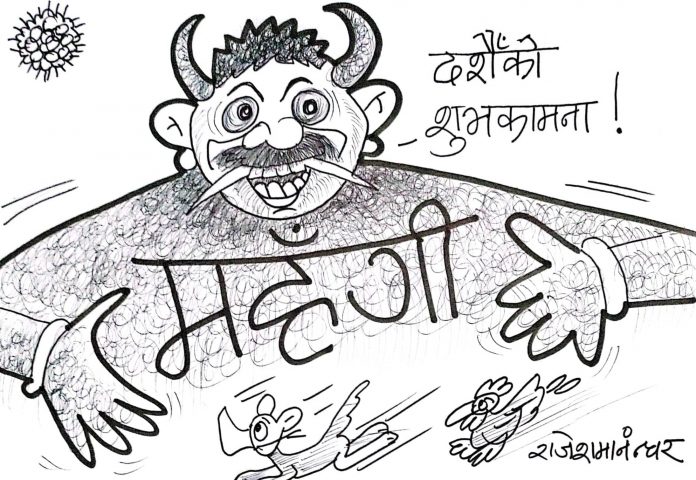 दशैँको
शुभकामना !
महँगी
राजेशमानंन्धर